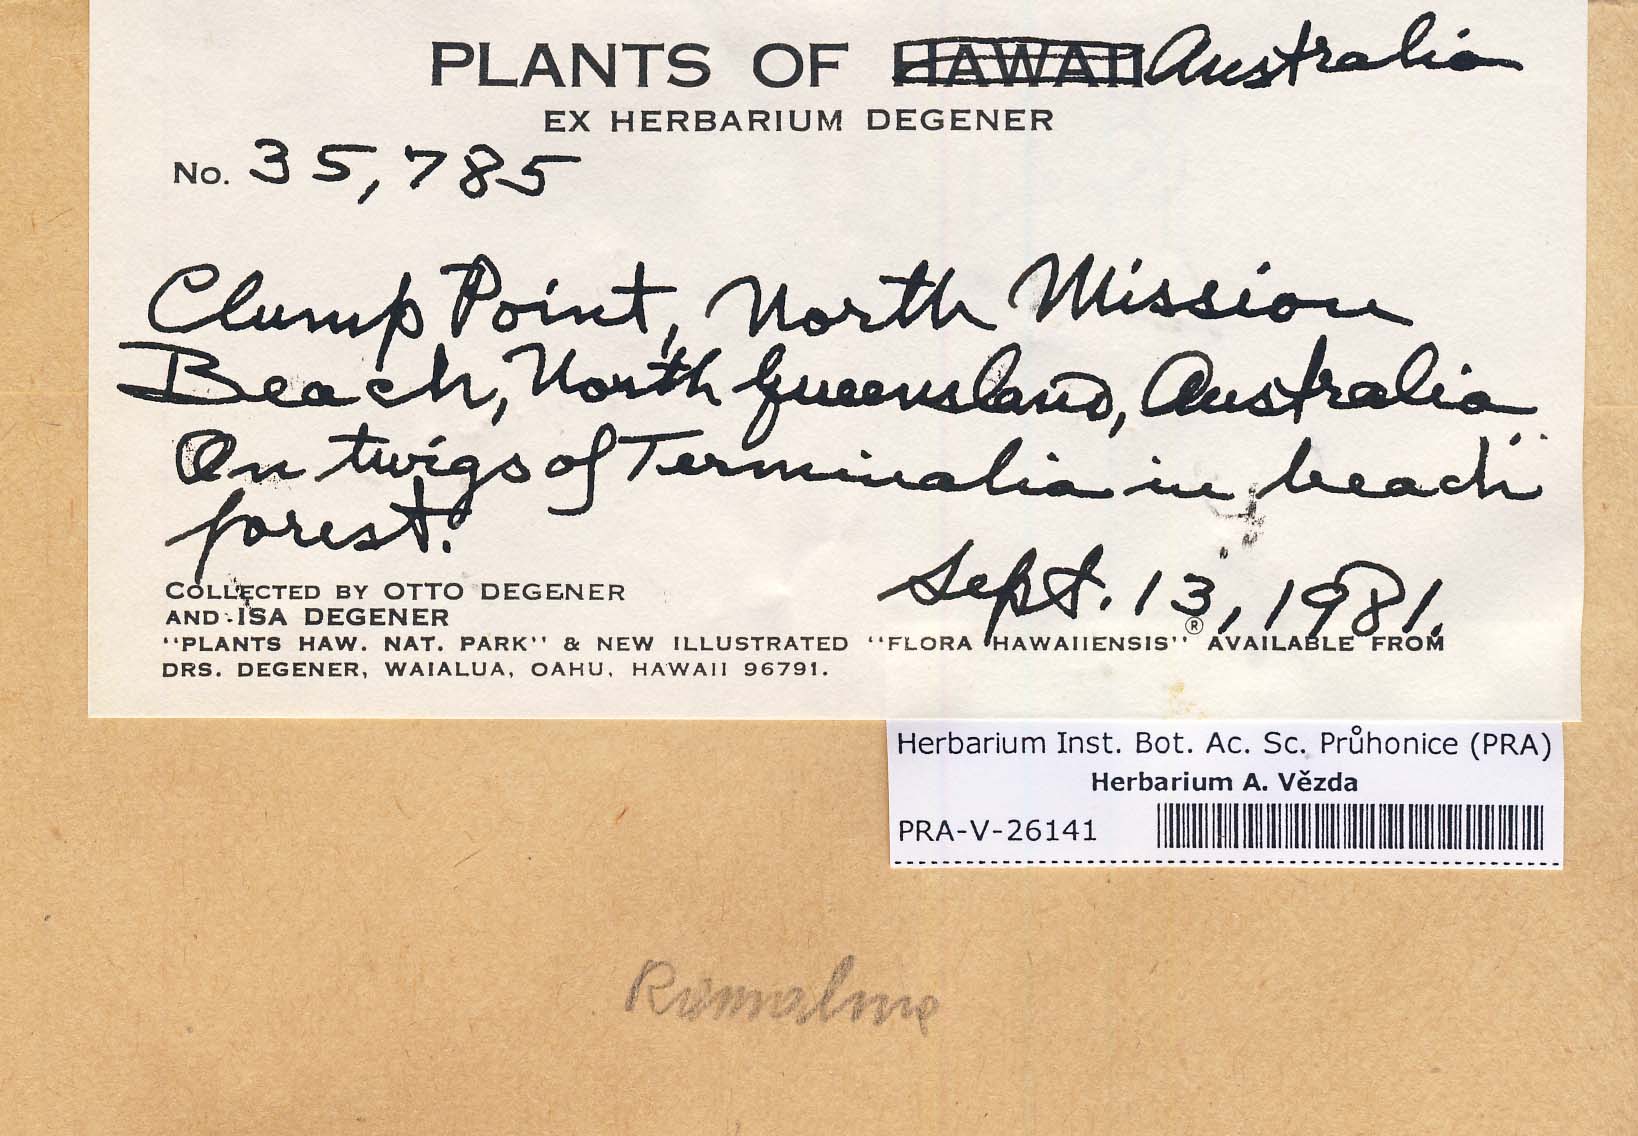 PLANTS OF HAWAII Australia
EX HERBARIUM DEGENER
No. 35,785
Clump Point, North Mission
Beach, North Queensland, Australia
On twigs of Terminalia in beach
forest.
Sept. 13, 1981.
COLLECTED BY OTTO DEGENER
AND ISA DEGENER
"PLANTS HAW. NAT. PARK" & NEW ILLUSTRATED "FLORA HAWAIIENSIS"® AVAILABLE FROM
DRS. DEGENER, WAIALUA, OAHU, HAWAII 96791.
Herbarium Inst. Bot. Ac. Sc. Průhonice (PRA)
Herbarium A. Vězda
PRA-V-26141
Ramalina